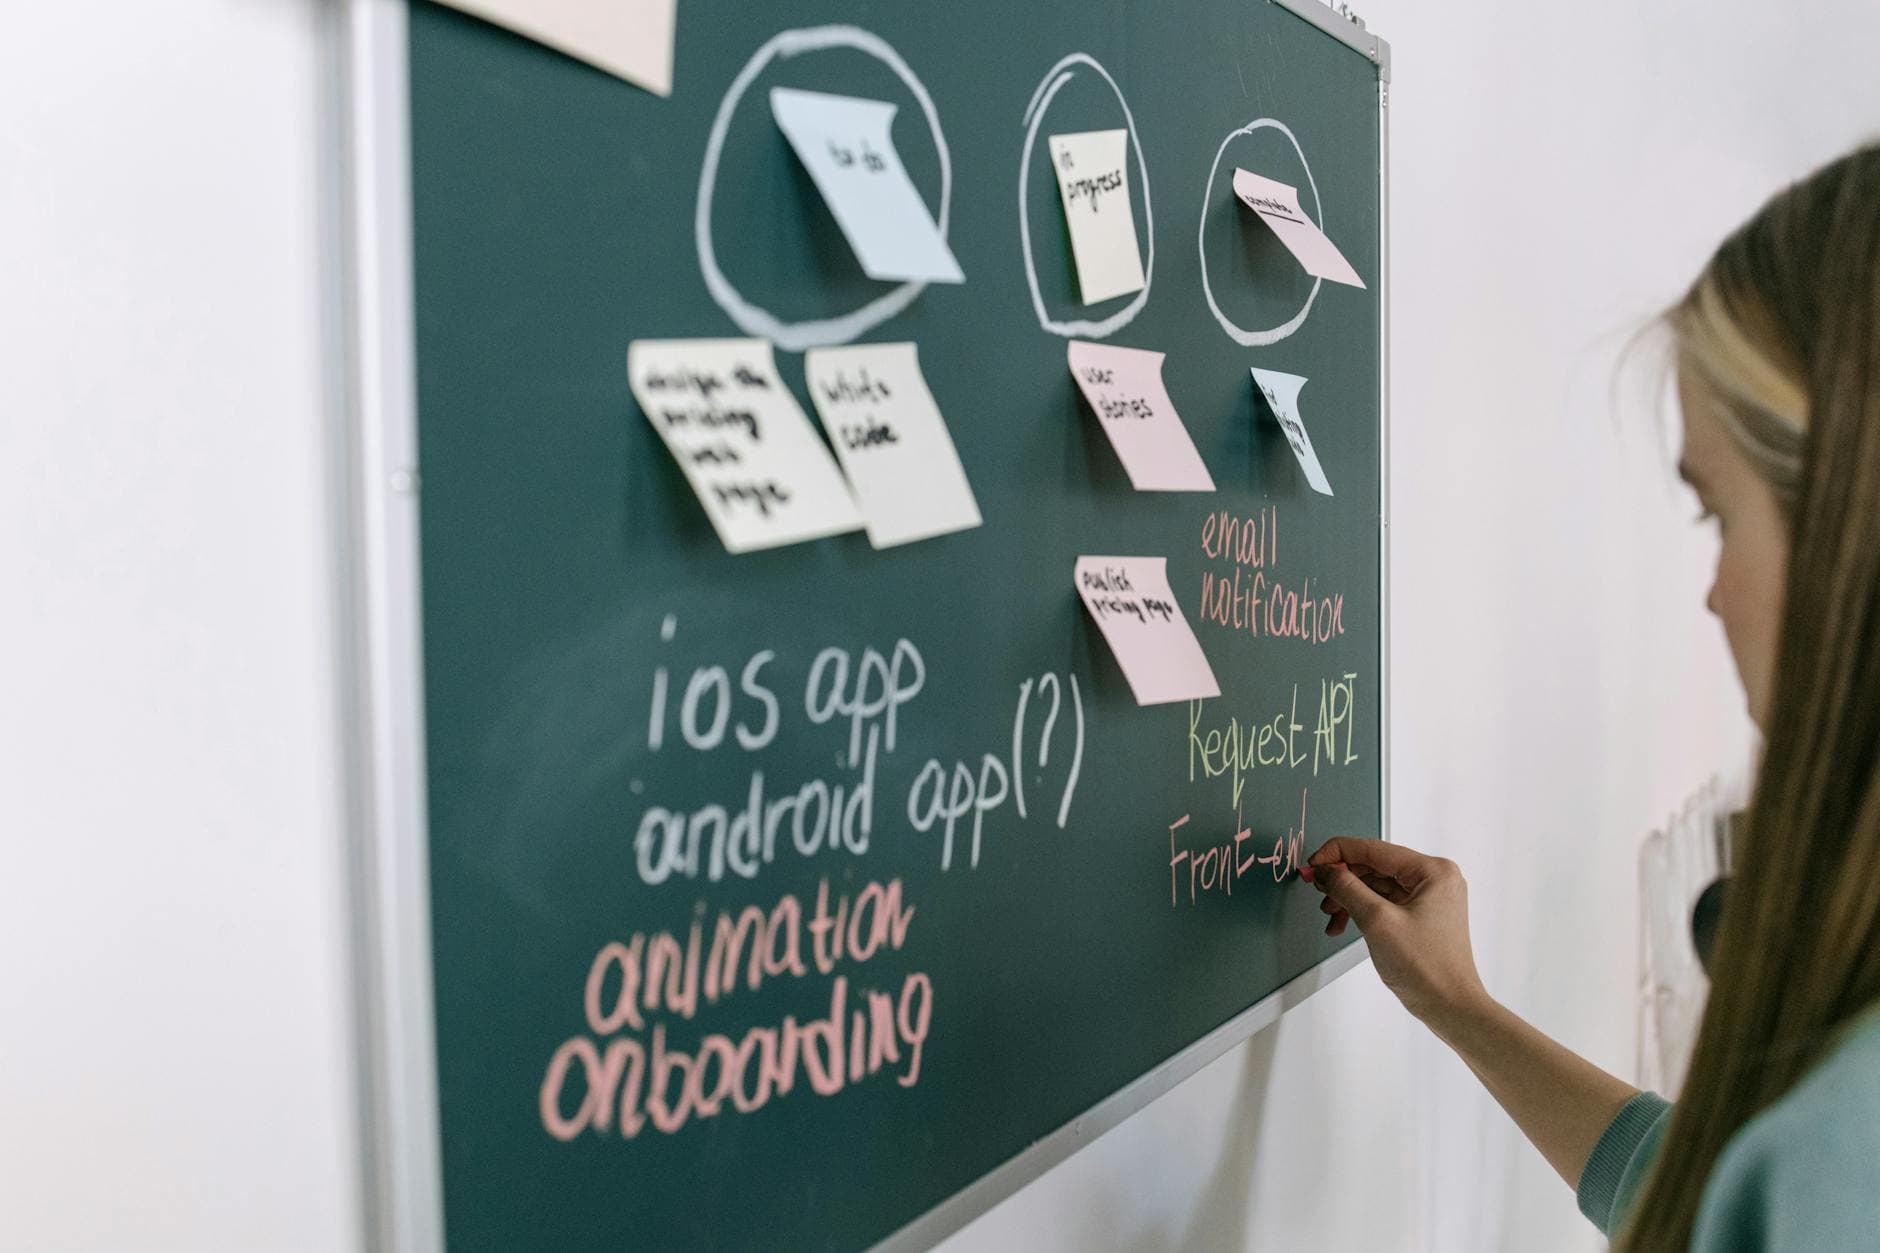 to do
in
progress
complete
the
pricing
web
page
write
code
user
stories
publish
pricing page
email
notification
Request API
Front-end
ios app
android app(?)
animation
onboarding